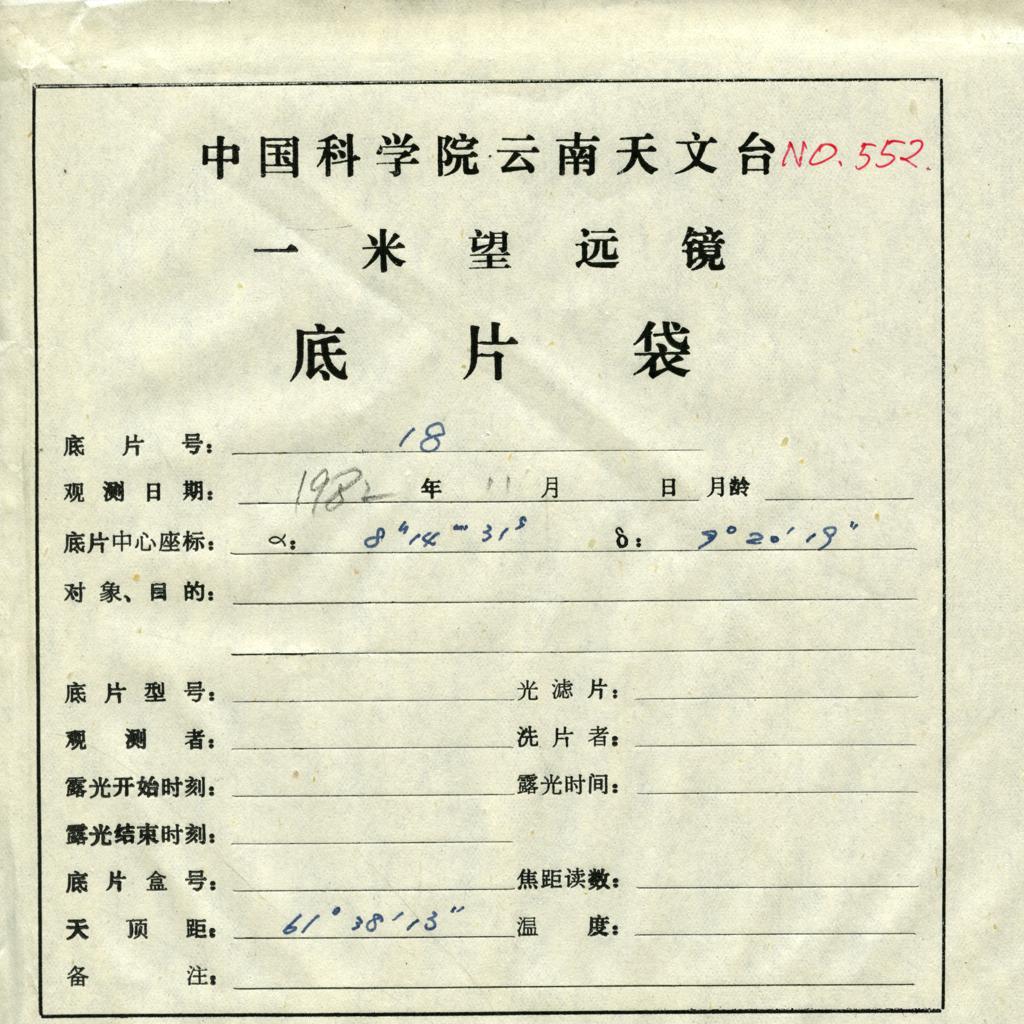 中国科学院云南天文台 NO. 552.
一米望远镜
底片袋
底片号： 18
观测日期： 1982 年 11 月 日 月龄
底片中心座标： α： 8h 14m 31s δ： 9° 20′ 19″
对象、目的：
底片型号： 光滤片：
观测者： 洗片者：
露光开始时刻： 露光时间：
露光结束时刻：
底片盒号： 焦距读数：
天顶距： 61° 38′ 13″ 温度：
备注：